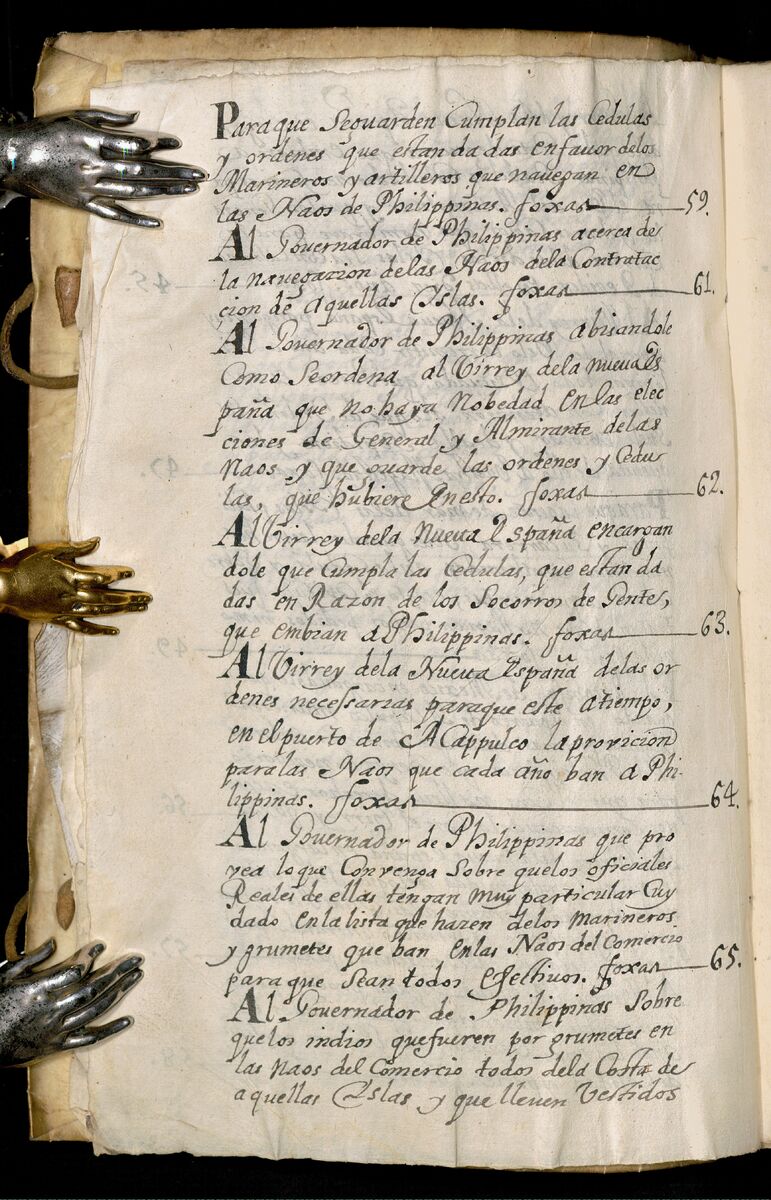 Para que Seguarden Cumplan las Cedulas
y ordenes que estan da das en favor delos
Marineros y artilleros que navegan en
las Naos de Philippinas. foxas 59.
Al Governador de Philippinas acerca de
la navegazion delas Naos dela Contratac
cion de aquellas Yslas. foxas 61.
Al Governador de Philippinas abisandole
Como Seordena al Virrey dela nueva Es
paña que no haya Nobedad en las elec
ciones de General y Almirante delas
Naos y que guarde las ordenes y Cedu
las, que hubiere en esto. foxas 62.
Al Virrey dela Nueva España encargan
dole que Cumpla las Cedulas, que estan da
das en Razon de los Socorros de Gentes,
que embian a Philippinas. foxas 63.
Al Virrey dela Nueva España delas or
denes necessarias paraque este atiempo,
en el puerto de ACappulco la provicion
para las Naos que cada año ban a Phi-
lippinas. foxas 64.
Al Governador de Philippinas que pro
vea lo que Convenga Sobre quelos oficiales
Reales de ellas tengan muy particular Cuy
dado en la lista que hazen delos Marineros
y grumetes que ban en las Naos del Comercio
para que Sean todos efectivos. foxas 65.
Al Governador de Philippinas Sobre
quelos indios quefueren por grumetes en
las Naos del Comercio todos dela Costa de
aquellas Yslas y que lleven Vestidos